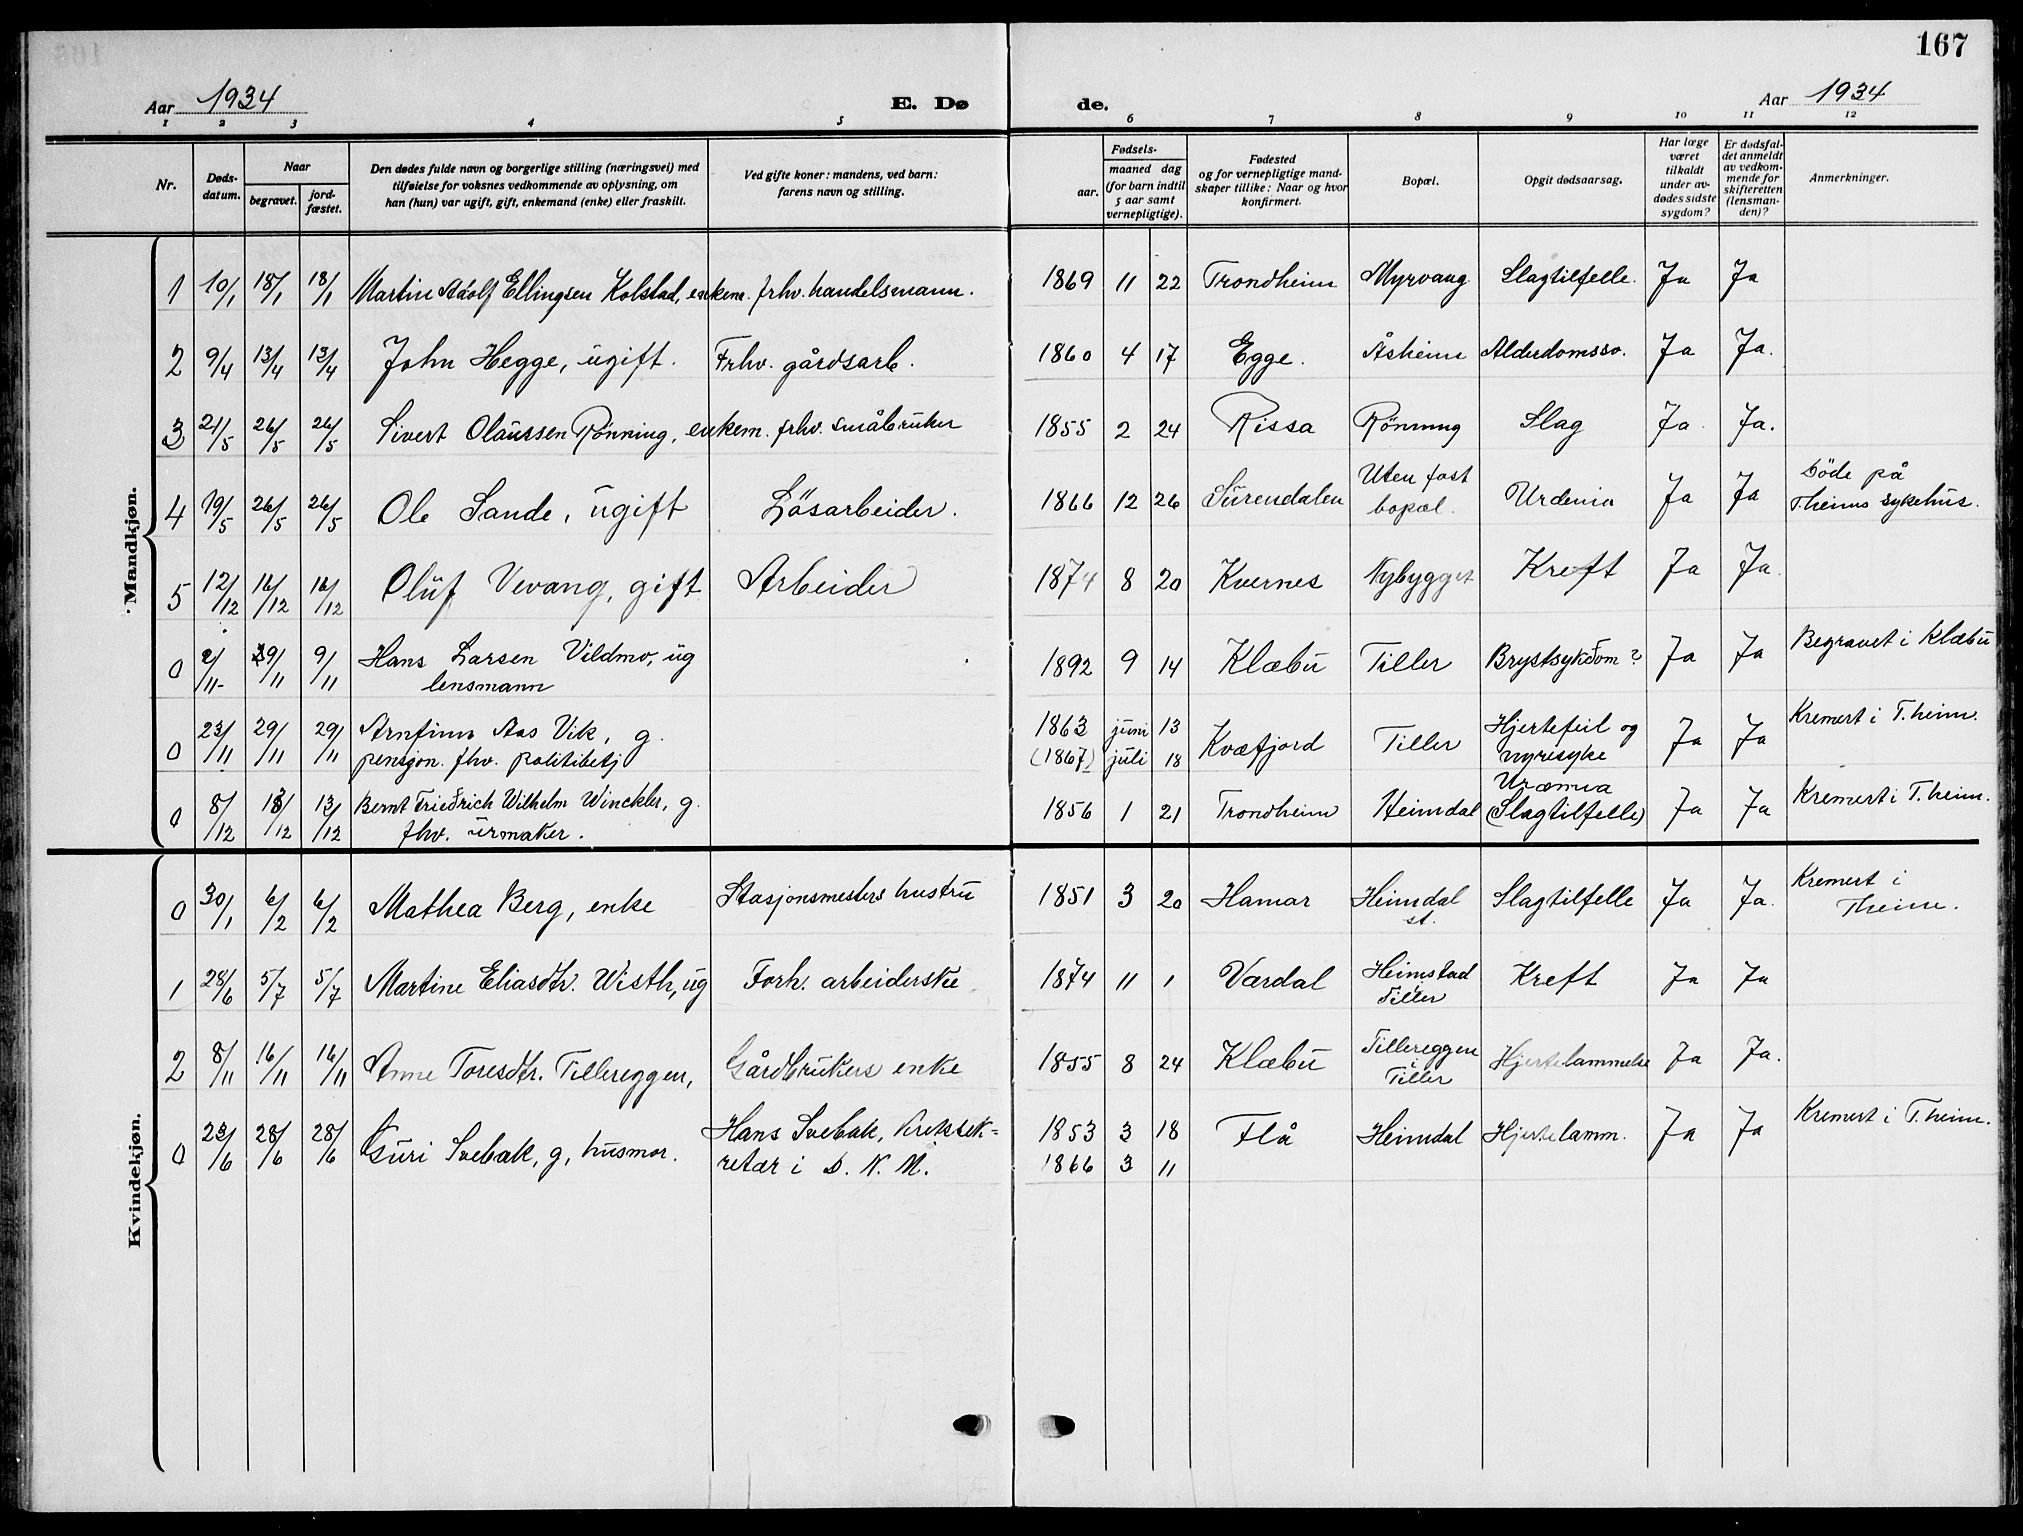 167
Aar 1934
E. Dø
de.
Aar 1934
1 2 3 4 5 6 7 8 9 10 11 12
Nr.
Døds-
datum.
Naar
begravet.
jord-
fæstet.
Den dødes fulde navn og borgerlige stilling (næringsvei) med
tilføielse for voksnes vedkommende av oplysning, om
han (hun) var ugift, gift, enkemand (enke) eller fraskilt.
Ved gifte koner: mandens, ved barn:
farens navn og stilling.
Fødsels-
aar.
maaned dag
(for barn indtil
5 aar samt
vernepligtige).
Fødested
og for vernepligtige mand-
skaper tillike: Naar og hvor
konfirmert.
Bopæl.
Opgit dødsaarsag.
Har læge
været
tilkaldt
under av-
dødes sidste
sygdom?
Er dødsfal-
det anmeldt
av vedkom-
mende for
skifteretten
(lensman-
den)?
Anmerkninger.
Mandkjøn.
1 10/1 18/1 18/1 Martin Adolf Ellingsen Kolstad, enkem. frhv. handelsmann. 1869 11 22 Trondheim Myrvang Slagtilfelle. Ja Ja
2 9/4 13/4 13/4 John Hegge, ugift. Frhv. gårdsarb. 1860 4 17 Egge. Åsheim Alderdomssv. Ja Ja.
3 21/5 26/5 26/5 Sivert Olaussen Rönning, enkem. frhv. småbruker 1855 2 24 Rissa Rönning Slag Ja Ja.
4 19/5 26/5 26/5 Ole Sande, ugift Lösarbeider. 1866 12 26 Surendalen Uten fast
bopæl. Urämia Ja Ja Döde på
T.heims sykehus.
5 12/12 16/12 16/12 Oluf Vevang, gift Arbeider 1874 8 20 Kvernes Nybygget Kreft Ja Ja.
0 2/11 9/11 9/11 Hans Larsen Vildmo, ug
lensmann 1892 9 14 Klæbu Tiller Brystsykdom? Ja Ja Begravet i Klæbu
0 23/11 29/11 29/11 Arnfinn Aas Vik, g.
pensjon. fhv. politibetj 1863 juni 13
(1867) juli 18 Kvæfjord Tiller Hjertefeil og
nyresyke Ja Ja Kremert i T.heim.
0 8/12 13/12 13/12 Bernt Friedrich Wilhelm Winckler, g.
fhv. urmaker. 1856 1 21 Trondheim Heimdal Uræmia
(Slagtilfelle) Ja Ja Kremert i T.heim.
Kvindekjøn.
0 30/1 6/2 6/2 Mathea Berg, enke Stasjonsmesters hustru 1851 3 20 Hamar Heimdal
st. Slagtilfelle Ja Ja. Kremert i
Theim.
1 28/6 5/7 5/7 Martine Eliasdtr. Wisth, ug Forh. arbeiderske 1874 11 1 Værdal Heimstad
Tiller Kreft Ja Ja
2 8/11 16/11 16/11 Anne Toresdtr. Tillereggen, Gårdbrukers enke 1855 8 24 Klæbu Tillereggen
i
Tiller Hjertelammelse Ja Ja.
0 23/6 28/6 28/6 Guri Svebak, g, husmor. Hans Svebak, Kretssek=
retær i D. N. M. 1853 3 18 Flå Heimdal Hjertelamm. Ja Ja Kremert i T.heim.
1866 3 11